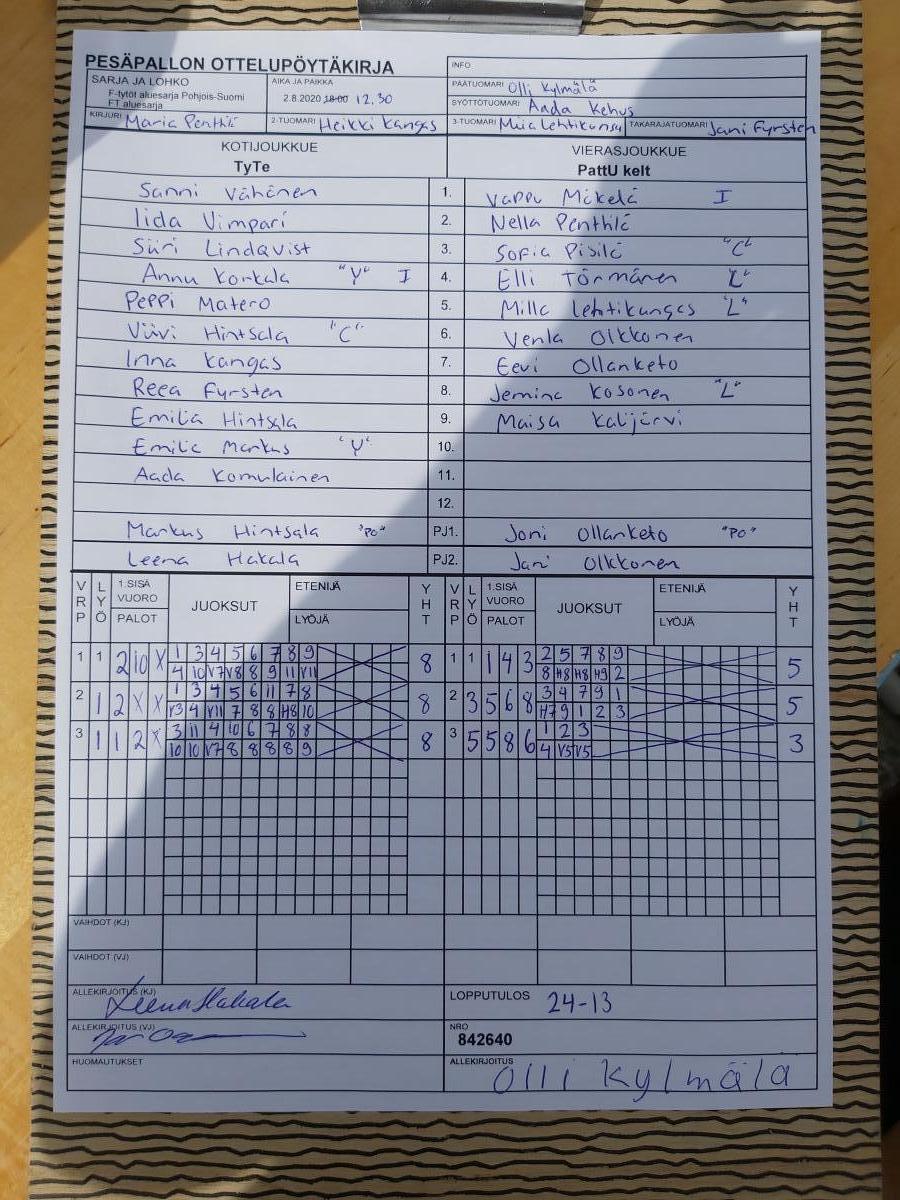 PESÄPALLON OTTELUPÖYTÄKIRJA
INFO
SARJA JA LOHKO
F-tytöt aluesarja Pohjois-Suomi
FT aluesarja
AIKA JA PAIKKA
2.8.2020 18:00 12.30
PÄÄTUOMARI Olli Kylmälä
SYÖTTÖTUOMARI Aada Kehus
KIRJURI Maria Penttilä
2-TUOMARI Heikki Kangas
3-TUOMARI Miia Lehtikangas
TAKARAJATUOMARI Jani Fyrsten
KOTIJOUKKUE
TyTe
VIERASJOUKKUE
PattU kelt
Sanni Vähänen 1. Vappu Mäkelä I
Iida Vimpari 2. Nella Penttilä
Siiri Lindqvist 3. Sofia Pisilä "C"
Annu Korkala "Y" I 4. Elli Törmänen "L"
Peppi Matero 5. Milla Lehtikangas "L"
Viivi Hintsala "C" 6. Venla Olkkonen
Inna Kangas 7. Eevi Ollanketo
Reea Fyrsten 8. Jemina Kosonen "L"
Emilia Hintsala 9. Maisa Kaljärvi
Emilia Markus "Y" 10.
Aada Komulainen 11.
12.
Markus Hintsala "PO" PJ1. Joni Ollanketo "PO"
Leena Hakala PJ2. Jani Olkkonen
VRP LYÖ 1.SISÄ VUORO PALOT JUOKSUT ETENIJÄ LYÖJÄ YHT VRP LYÖ 1.SISÄ VUORO PALOT JUOKSUT ETENIJÄ LYÖJÄ YHT
1 1 2 10 X 1 3 4 5 6 7 8 9 8 1 1 1 4 3 2 5 7 8 9 5
4 10 V7 V8 8 9 11 V11 8 H8 H8 H9 2
2 1 2 X X 1 3 4 5 6 11 7 8 8 2 3 5 6 8 3 4 7 9 1 5
V3 4 V11 7 8 8 H8 10 H7 9 1 2 3
3 1 1 2 X 3 11 4 10 6 7 8 8 8 3 5 5 8 6 1 2 3 3
10 10 V7 8 8 8 8 9 4 V5 V5
VAIHDOT (KJ)
VAIHDOT (VJ)
ALLEKIRJOITUS (KJ) Leena Hakala
LOPPUTULOS 24-13
ALLEKIRJOITUS (VJ)
NRO
842640
HUOMAUTUKSET
ALLEKIRJOITUS Olli Kylmälä